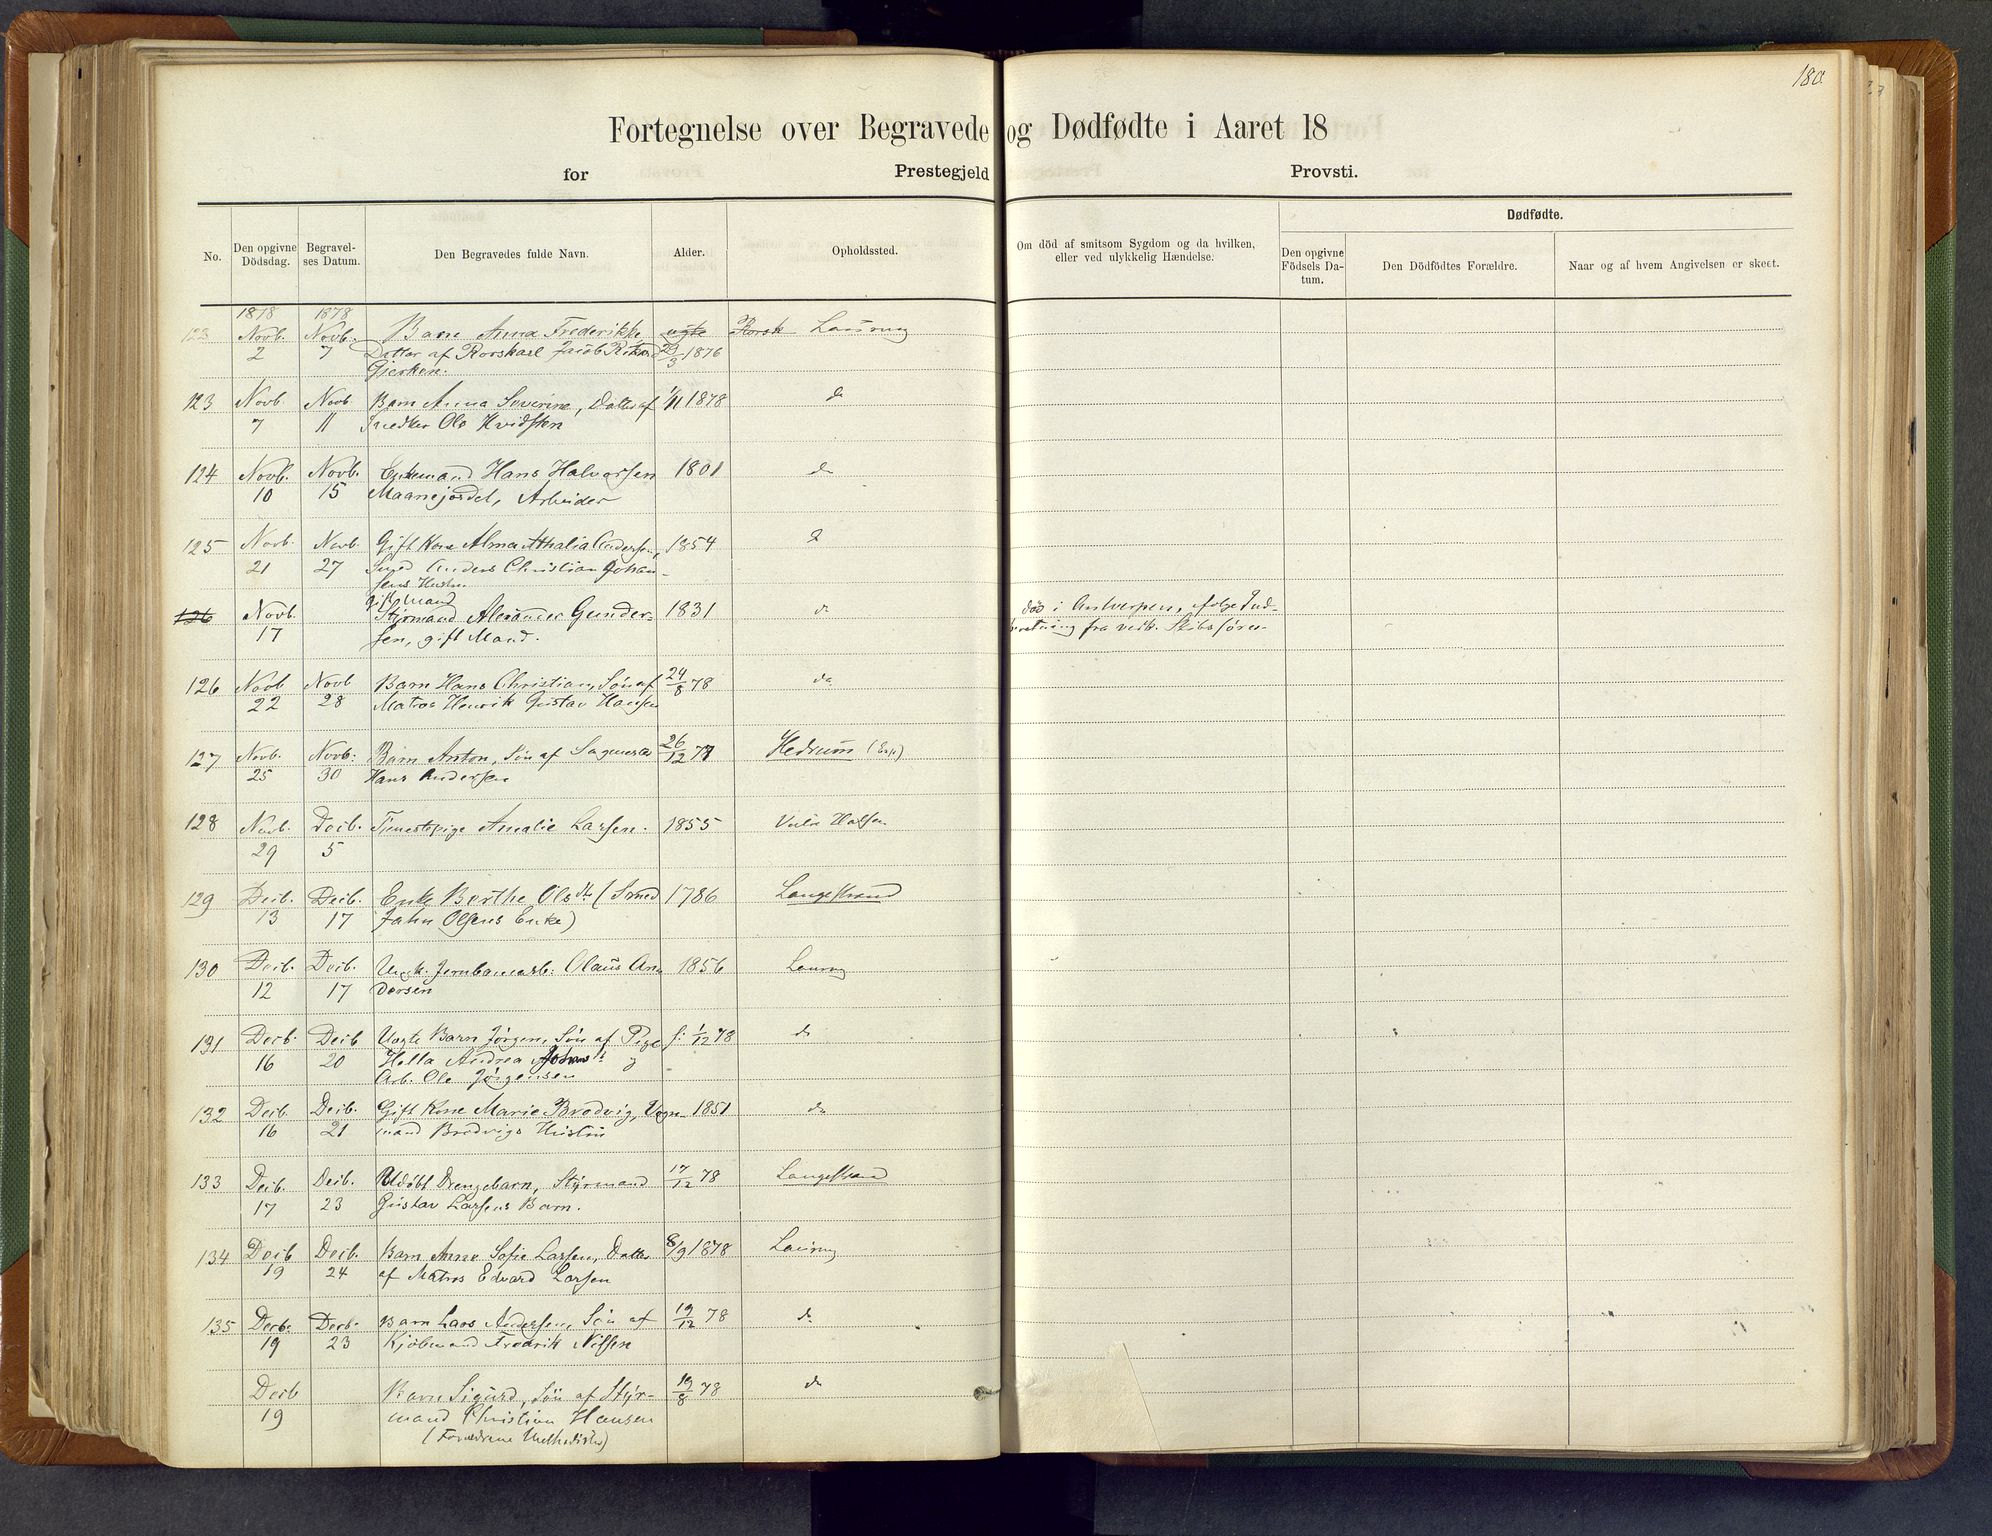 180
Fortegnelse over Begravede og Dødfødte i Aaret 18
for Prestegjeld Provsti.
Dødfødte.
No. Den opgivne Dödsdag. Begravelses Datum. Den Begravedes fulde Navn. Alder. Opholdssted. Om död af smitsom Sygdom og da hvilken, eller ved ulykkelig Hændelse. Den opgivne Födsels Datum. Den Dödfödtes Forældre. Naar og af hvem Angivelsen er skeet.
1878 1878
123 Novb. Novb. Barn Anna Frederikke, Laurvig
2 7 Datter af Jacob 3 1876
Gjerken.
123 Novb. Novb. Barn Anna Severine, Datter af 1/11 1878 do
7 11 Snedker Ole Hvidsten
124 Novb. Novb. Enkemand Hans Halvorsen 1801 do
10 15 Maanejordet, Arbeider
125 Novb. Novb. Gift Kone Alma Athalia Andersen, 1854 d
21 27 Smed Anders Christian Johan-
sens Hustru
gift Mand
126 Novb. Styrmand Alexander Gunder- 1831 do død i Antverpen, ifølge Ind-
17 sen, gift Mand. beretning fra vedk. Skibsfører
126 Novb Novb Barn Hans Christian, Søn af 24/8 78 do
22 28 Matros Henrik Gustav Hansen
127 Novb. Novb: Barn Anton, Søn af 26/12 77 Hedrum
25 30 Hans Andersen
128 Novb. Decb. Tjenestepige Amalie Larsen. 1855 Halsen
29 5
129 Decb. Decb. Enke Berthe Olsdtr (Smed 1786 Langestrand
13 17 John Olsens Enke)
130 Decb. Decb. Ungk. Olaus An- 1856 Laurvig
12 17 dersen
131 Decb. Decb Uægte Barn Jørgen, Søn af Pige f: 1/12 78 do
16 20 Andrea
Arb. Ole Jørgensen
132 Decb. Decb. Gift Kone Marie Brodvig, Vogn- 1851 do
16 21 mand Brodvigs Hustru
133 Decb. Decb. Udøbt Drengebarn, Styrmand 17/12 78 Langestrand
17 23 Gustav Larsens Barn.
134 Decb Decb. Barn Anne Sofie Larsen, Datter 8/9 1878 Laurvig
19 24 af Matros Edvard Larsen
135 Decb. Decb. Barn Lars Andersen, Søn af 19/12 78 do
19 23 Kjøbmand Fredrik Nilsen
Decb Barn Sigurd, Søn af Styr- 19/8 78 do
19 mand Christian Hansen
(Forældrene Methodister)